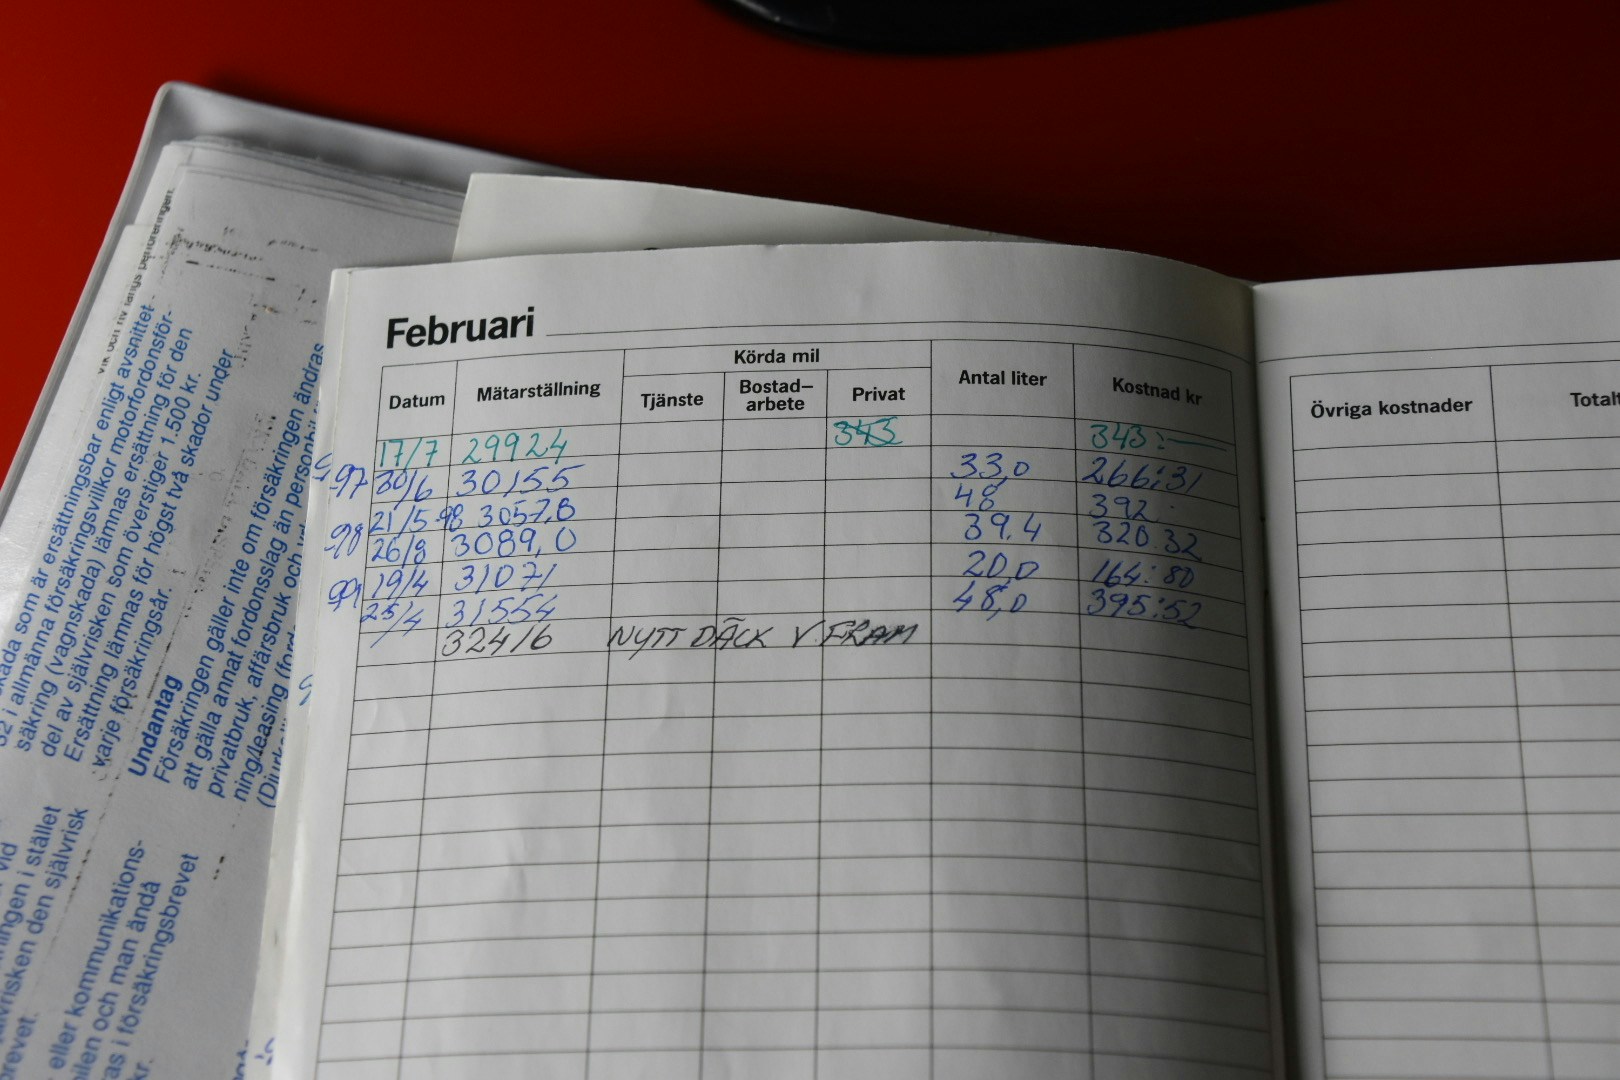 Februari
Datum Mätarställning Körda mil Antal liter Kostnad kr
Tjänste Bostad– arbete Privat
17/7 29924 343 343:—
97 30/6 30155 33,0 266:31
21/5-98 3057,8 48 392
98 26/8 3089,0 39,4 320.32
99 19/4 31071 20,0 164:80
25/4 31554 48,0 395:52
32416 NYTT DÄCK V FRAM
Övriga kostnader Totalt
32 i allmänna försäkringsvillkor motorfordonsför-
skada som är ersättningsbar enligt avsnittet
säkring (vagnskada) lämnas ersättning för den
del av självrisken som överstiger 1.500 kr.
Ersättning lämnas för högst två skador under
varje försäkringsår.
Undantag
Försäkringen gäller inte om försäkringen ändras
att gälla annat fordonsslag än personbil
privatbruk, affärsbruk och
ning/leasing
vid
ningen i stället
självrisken den självrisk
brevet.
eller kommunikations-
milen och man ändå
as i försäkringsbrevet
kr.